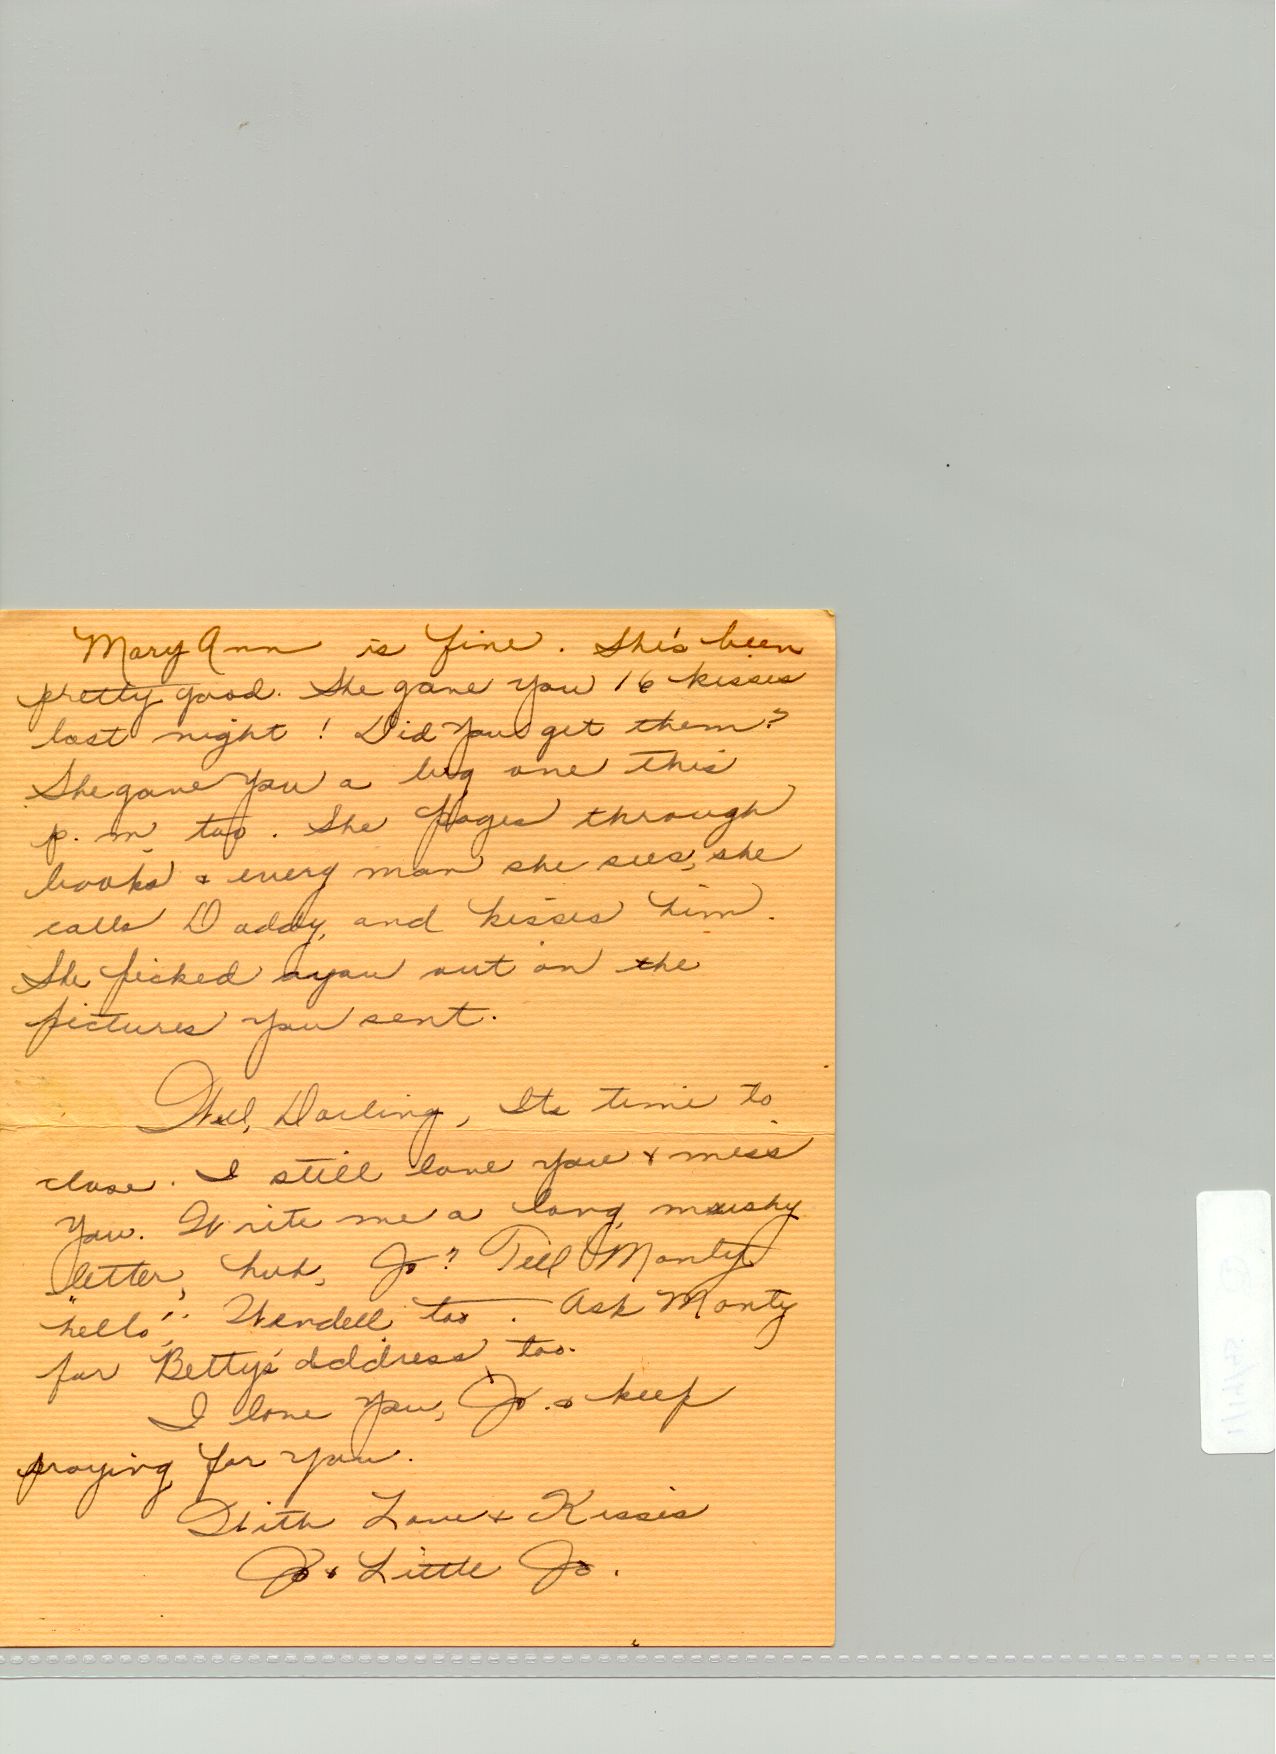 Mary Ann is fine. She's been
pretty good. She gave you 16 kisses
last night! Did you get them?
She gave you a big one this
p.m. too. She pages through
books & every man she sees, she
calls Daddy, and kisses him.
She picked you out on the
pictures you sent.
Well, Darling, Its time to
close. I still love you & miss
you. Write me a long, mushy
letter, huh, Jo? Tell Monty
"hello", Wendell too. Ask Monty
for Betty's address, too.
I love you, Jo. & keep
praying for you.
With Love & Kisses
Jo & Little Jo.